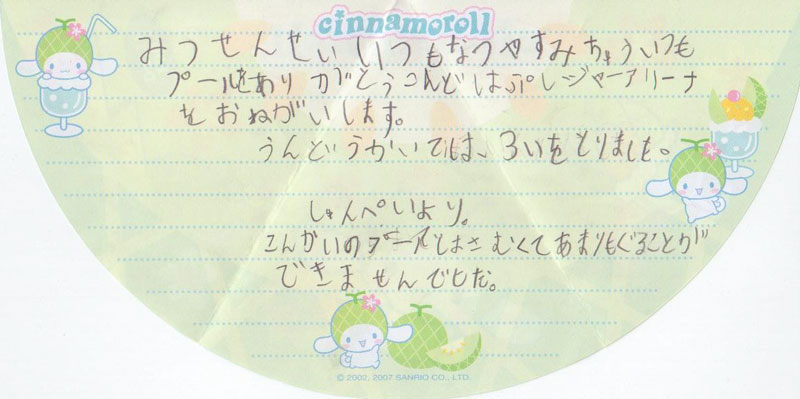 cinnamoroll
みつせんせいいつもなつやすみちゅういつも
プールをありがとうこんどはぷレジャーアリーナ
をおねがいします。
うんどうかいでは、3いをとりました。
しゅんぺいより。
こんかいのプールはさむくてあまりもぐることが
できませんでした。
© 2002, 2007 SANRIO CO., LTD.